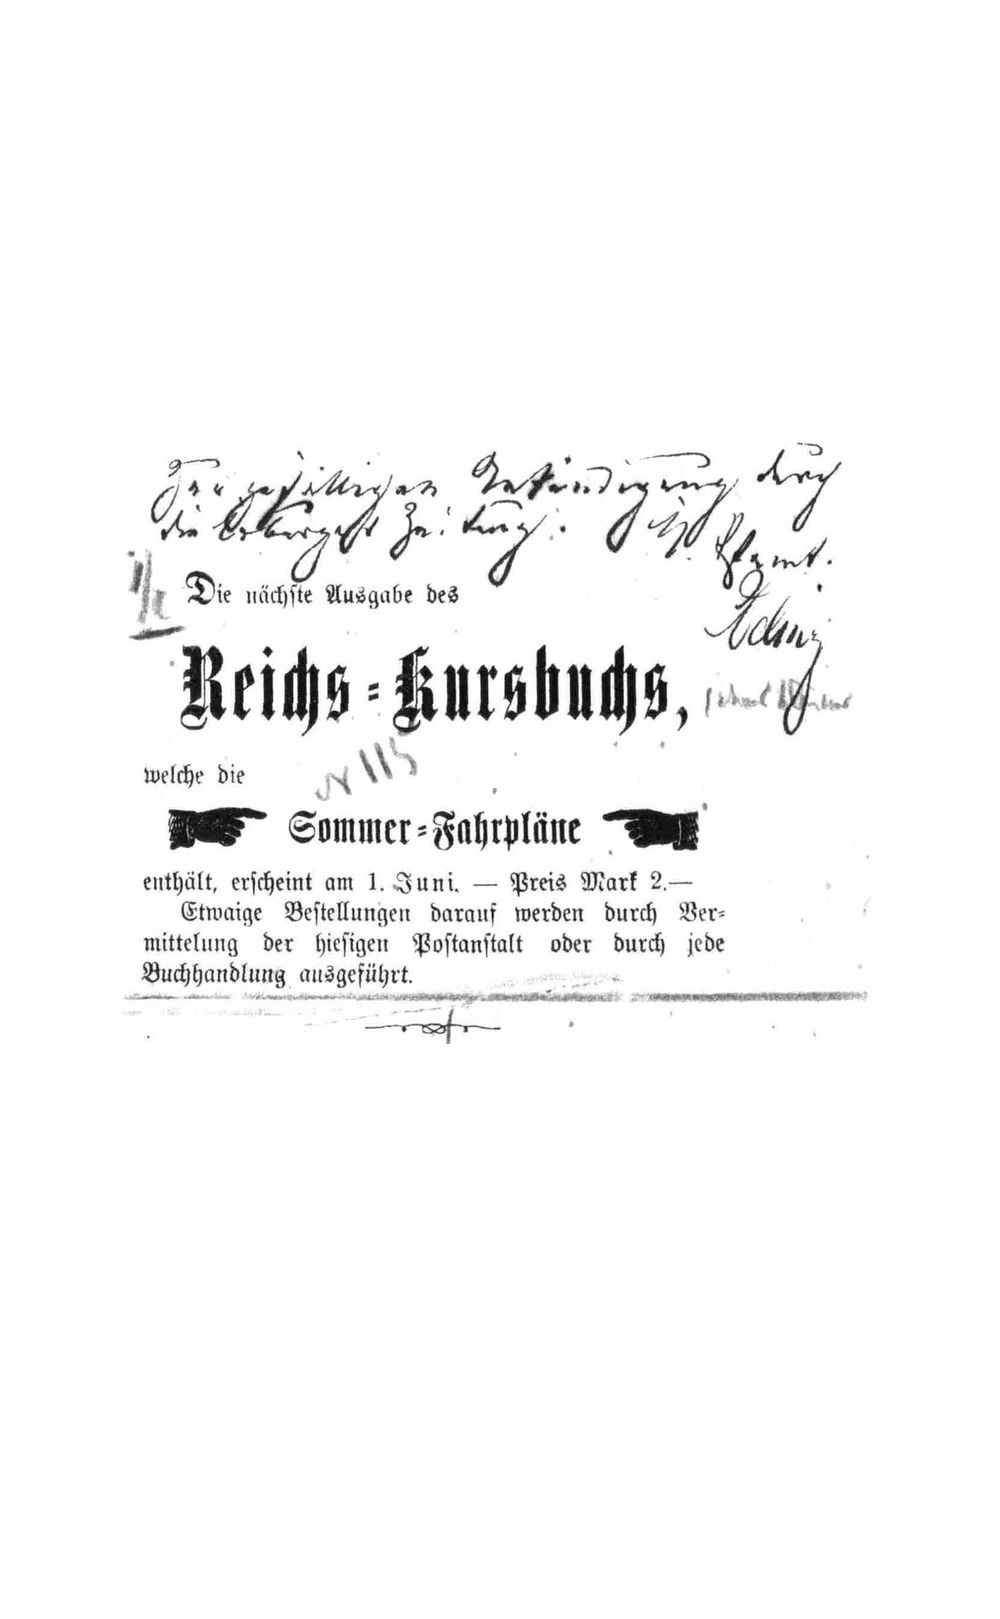 Zur gefälligen Ankündigung durch
die Zeitung.
Die nächste Ausgabe des
Reichs-Kursbuchs,
N 115
welche die
Sommer-Fahrpläne
enthält, erscheint am 1. Juni. — Preis Mark 2.—
Etwaige Bestellungen darauf werden durch Ver-
mittelung der hiesigen Postanstalt oder durch jede
Buchhandlung ausgeführt.